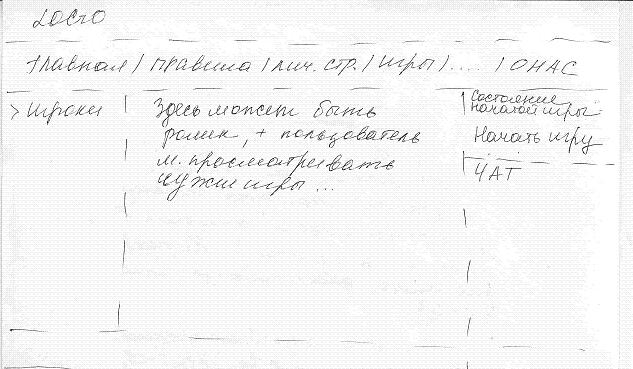 ЛОГО
Главная / правила / лич. стр. / игры / .... / О НАС
> Игроки
Здесь может быть
ролик, + пользователь
м. просматривать
чужие игры ...
Состояние
начатой игры
Начать игру
ЧАТ